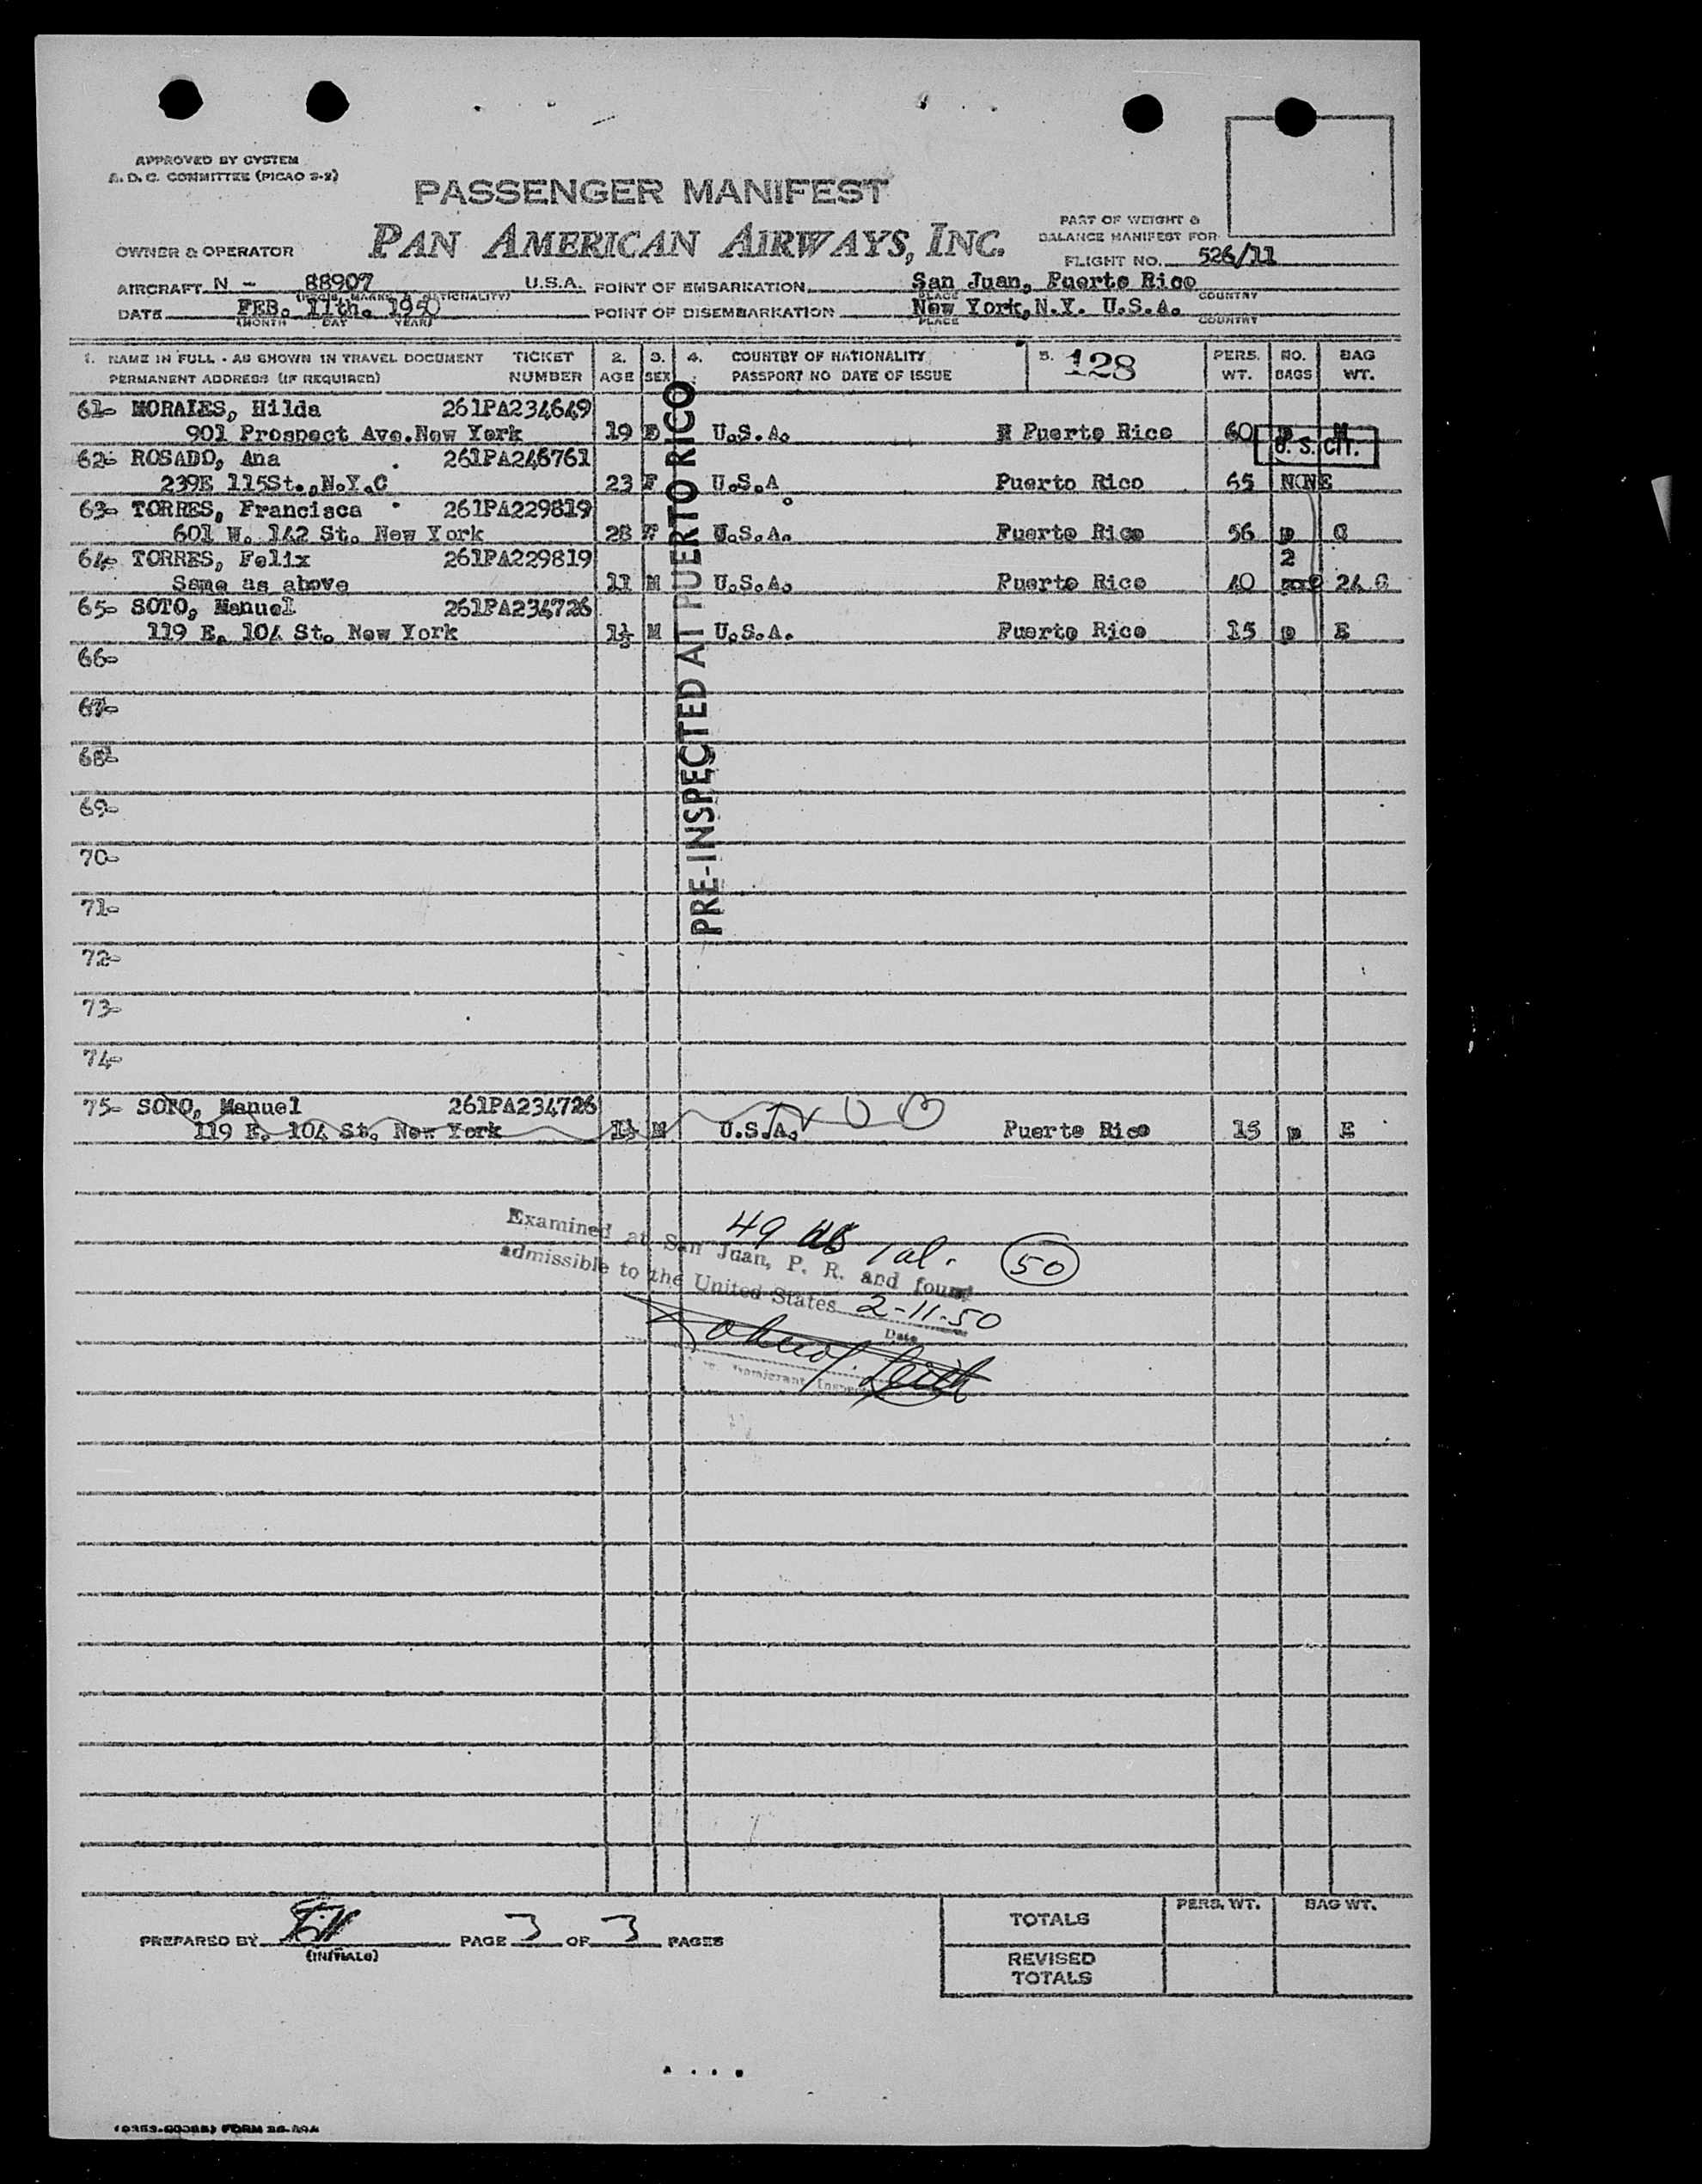 APPROVED BY SYSTEM
A. D. C. COMMITTEE (PICAO 3-2)
PASSENGER MANIFEST
PAN AMERICAN AIRWAYS, INC.
OWNER & OPERATOR
PART OF WEIGHT &
BALANCE MANIFEST FOR
FLIGHT NO. 526/11
AIRCRAFT N - 88907 U.S.A. POINT OF EMBARKATION San Juan, Puerto Rico
(REGIS. MARKS & NATIONALITY) PLACE COUNTRY
DATE FEB. 11th. 1950 POINT OF DISEMBARKATION New York, N.Y. U.S.A.
(MONTH DAY YEAR) PLACE COUNTRY
1. NAME IN FULL - AS SHOWN IN TRAVEL DOCUMENT TICKET 2. 3. 4. COUNTRY OF NATIONALITY 5. 128 PERS. NO. BAG
PERMANENT ADDRESS (IF REQUIRED) NUMBER AGE SEX PASSPORT NO DATE OF ISSUE WT. BAGS WT.
61- MORALES, Hilda 261PA234649
901 Prospect Ave. New York 19 U.S.A. Puerto Rico 60 p M
U. S. CIT.
62- ROSADO, Ana 261PA246761
239E 115St., N.Y.C 23 F U.S.A. Puerto Rico 65 NONE
63- TORRES, Francisca 261PA229819
601 W. 142 St. New York 28 F U.S.A. Puerto Rico 56 p G
64- TORRES, Felix 261PA229819 2
Same as above 11 M U.S.A. Puerto Rico 40 24 G
65- SOTO, Manuel 261PA234726
119 E. 104 St. New York 1½ M U.S.A. Puerto Rico 15 p E
66-
67-
68-
69-
70-
71-
72-
73-
74-
PRE-INSPECTED AT PUERTO RICO
75- SOTO, Manuel 261PA234726
119 E. 104 St. New York 1½ M U.S.A. Puerto Rico 15 p E
49 US 1 al. 50
Examined at San Juan, P. R. and found
admissible to the United States 2-11-50
Date
Immigrant Inspector
PREPARED BY PAGE 3 OF 3 PAGES
(INITIALS)
TOTALS PERS. WT. BAG WT.
REVISED
TOTALS